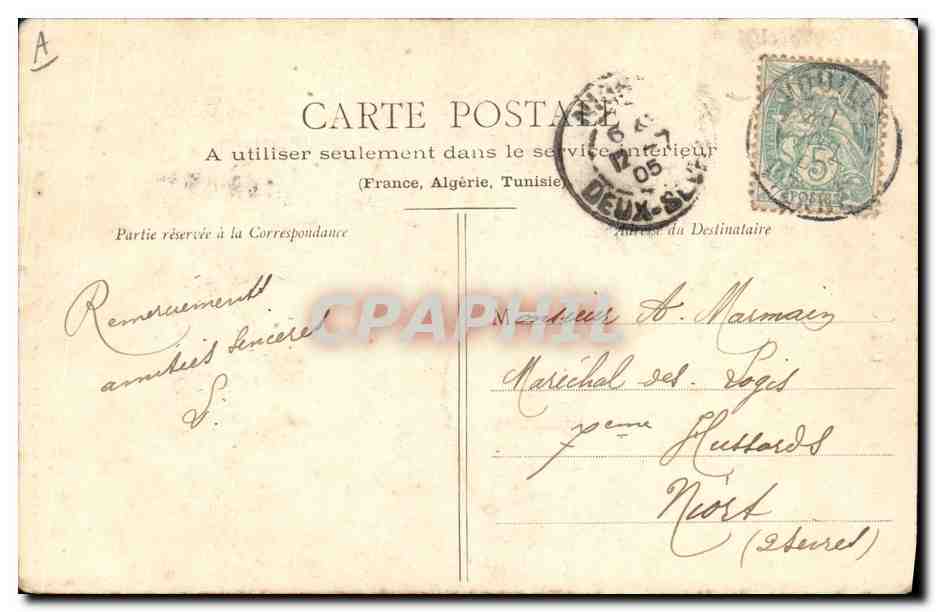 A
CARTE POSTALE
A utiliser seulement dans le service intérieur
(France, Algérie, Tunisie)
12 - 7
05
DEUX-SÈVRES
5
Partie réservée à la Correspondance
Adresse du Destinataire
Remerciements
amitiés sincères
S.
CPAPHIL
Monsieur A. Marmain
Maréchal des Logis
7eme Hussards
Niort
(2 Sevres)